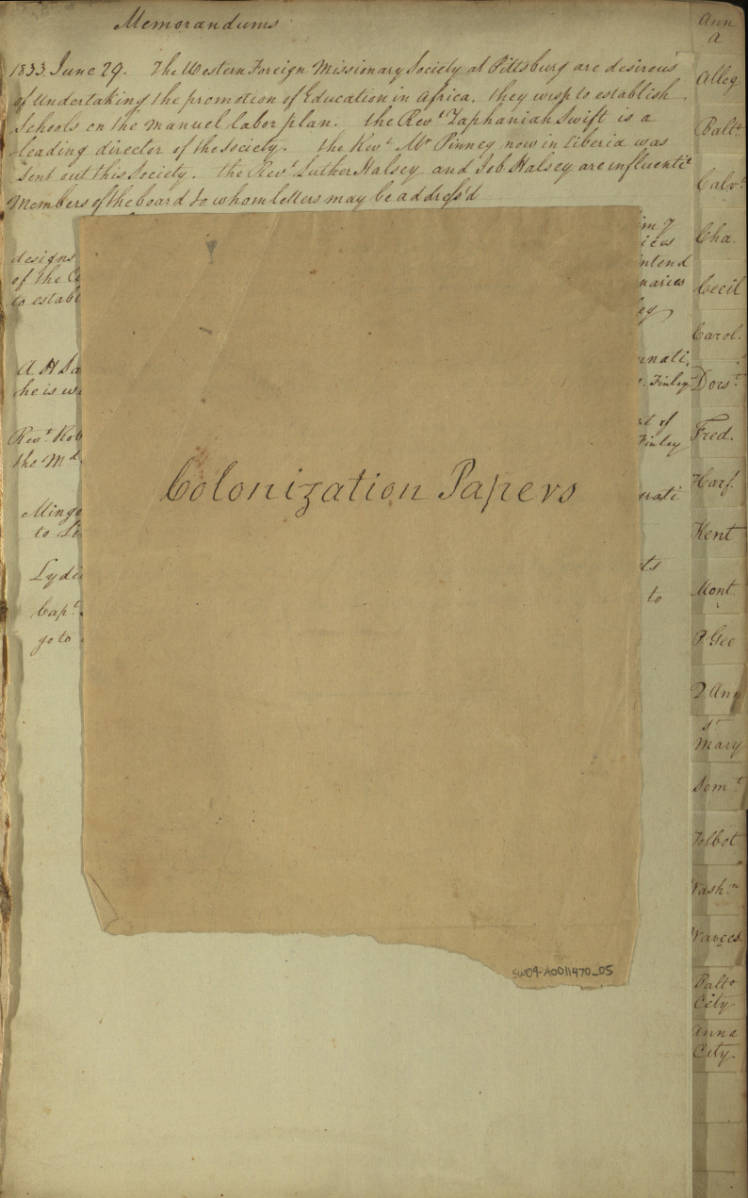 Memorandums
1833. June 29. The Western Foreign Missionary Society at Pittsburg are desirous
of undertaking the promotion of Education in Africa. they wish to establish
Schools on the manuel labor plan. the Revd Zaphaniah Swift is a
leading director of the Society. the Revd Mr Pinney now in Liberia was
sent out this Society. the Revd Luther Halsey and Job Halsey are influentl
Members of the board to whom letters may be address'd
designs
of the
to establ
intend
naries
A H
he is
nnati.
Finley
Revd Rob
the Md
of
Finley
Mingo
to
Lydia
Capt
to
go to
Colonization Papers
SW09-A0011470_05
Ann
a
Alleg
Balto
Calvt
Cha.
Cecil
Carol.
Dorst
Fred.
Harf.
Kent
Mont
P. Geo
2 Ann
St
Mary
Somt
Tolbot
Washn
Worces
Balto
City
Anna
City